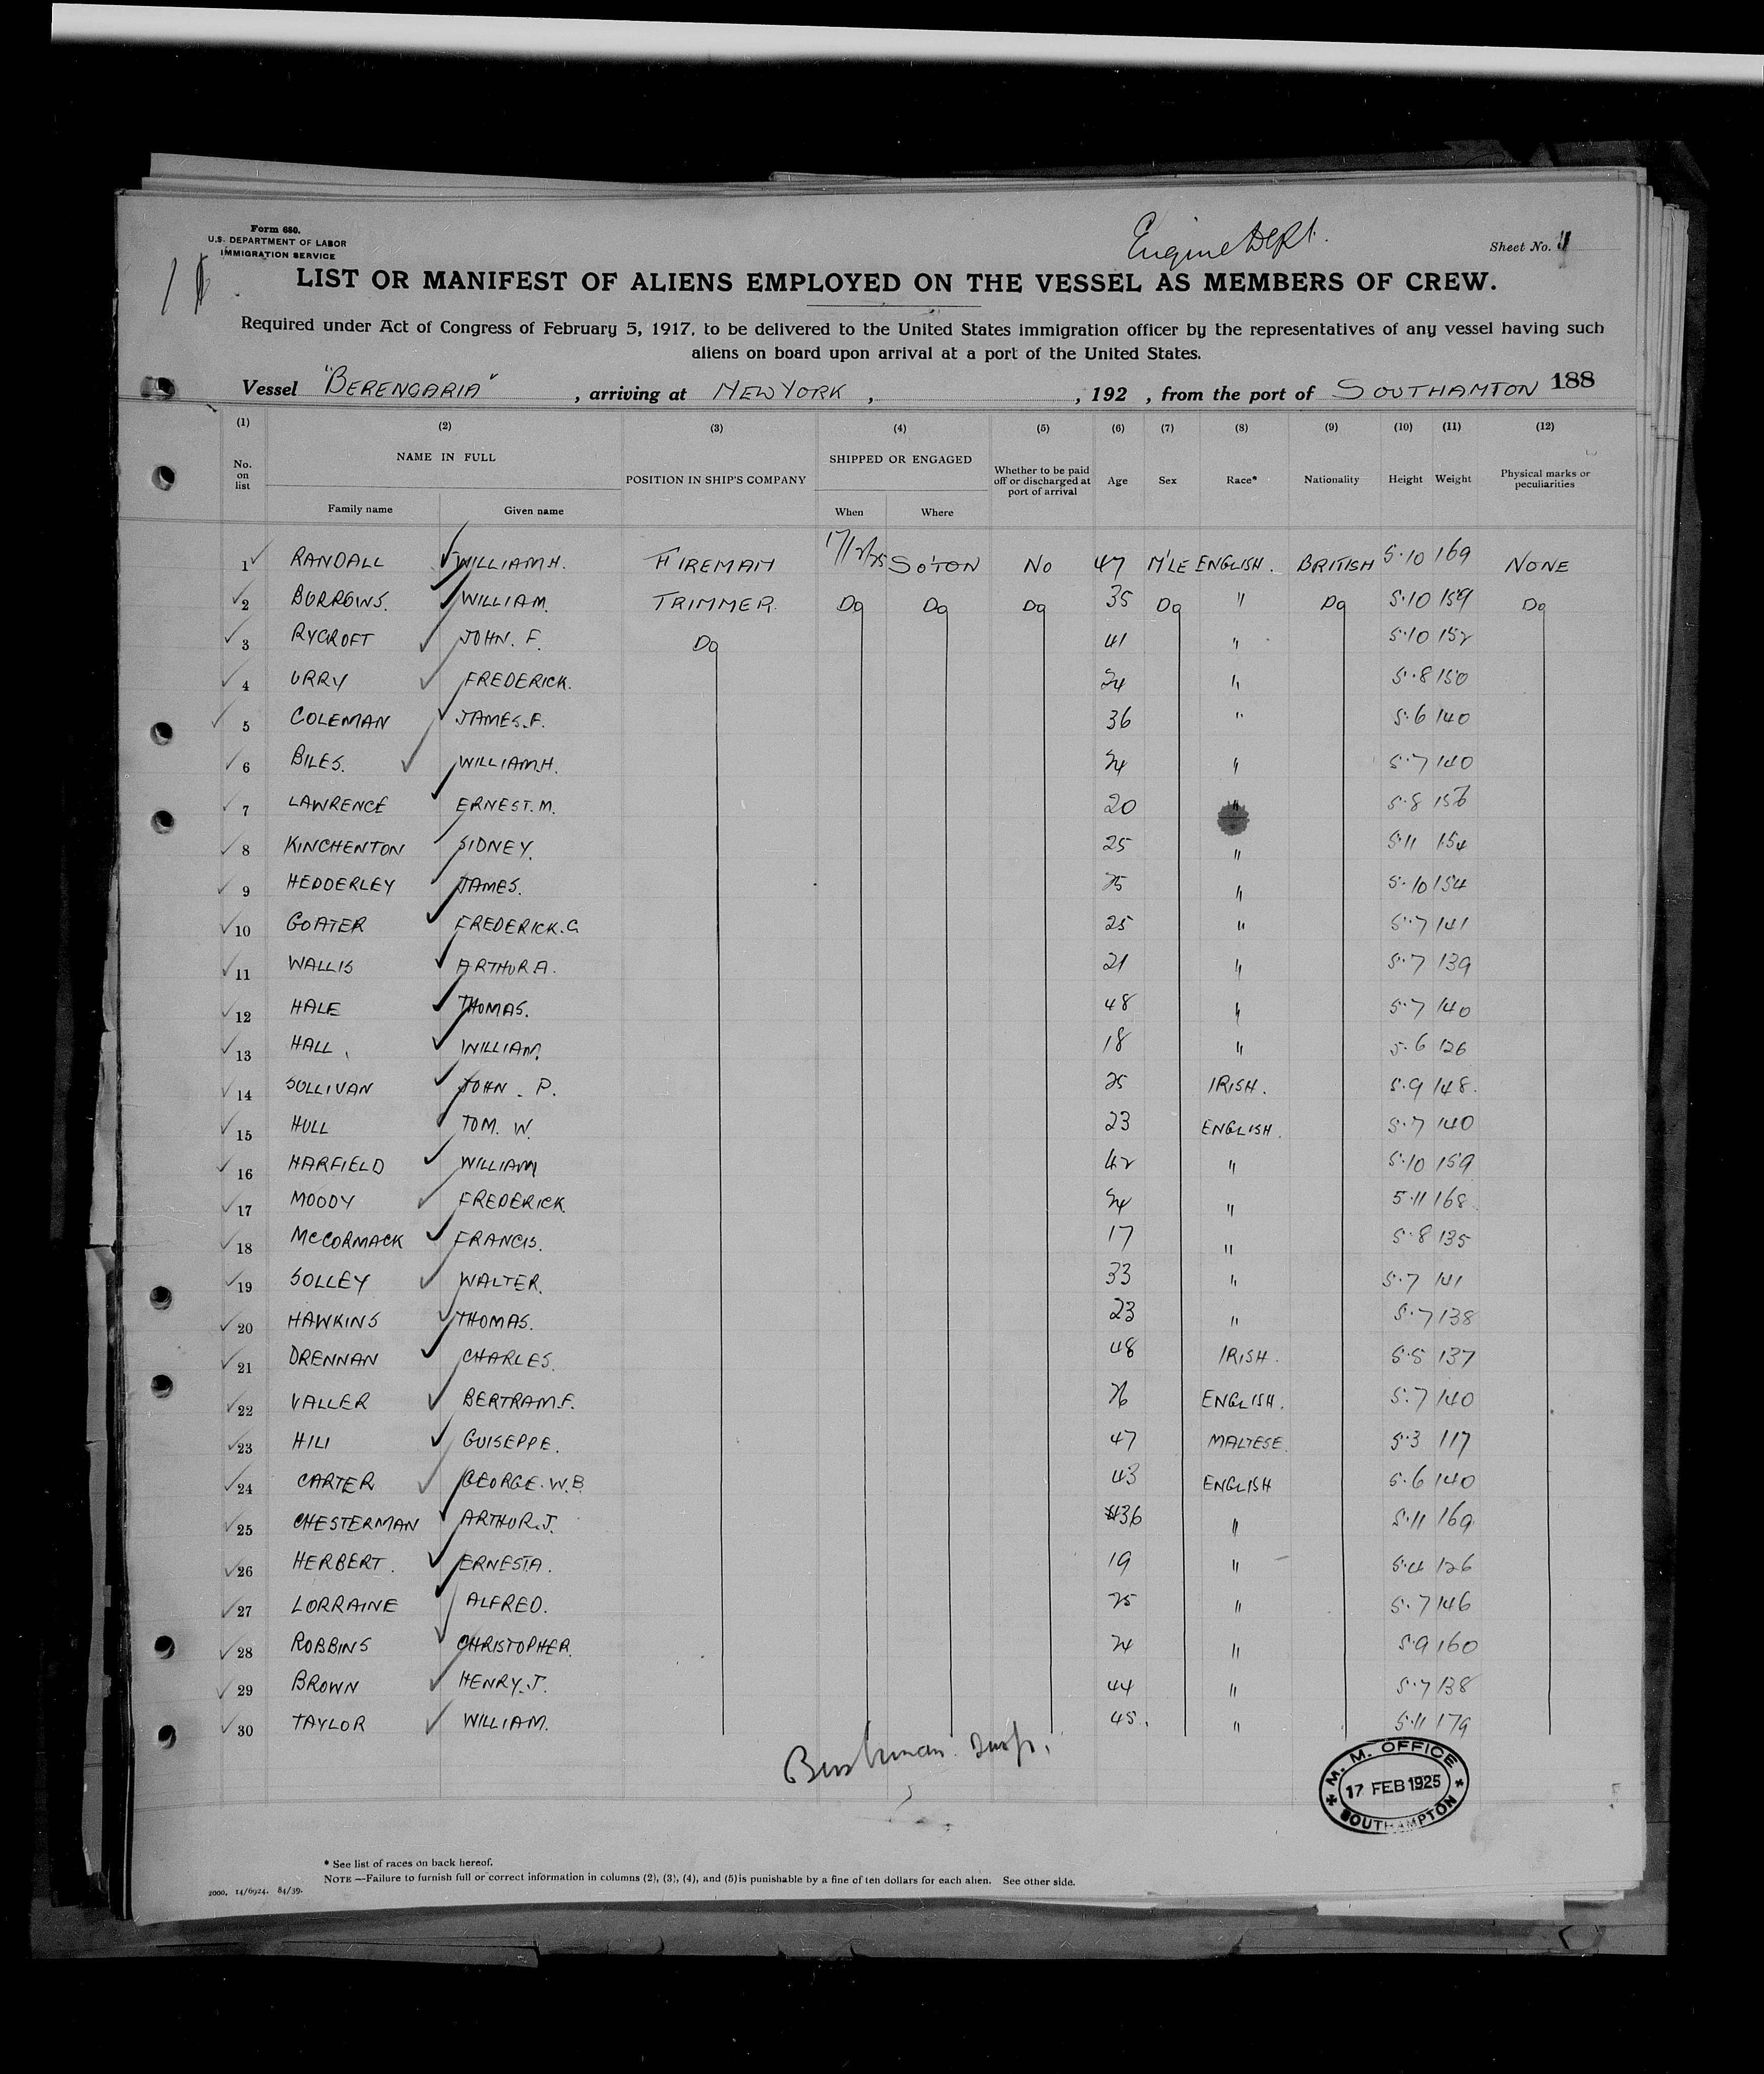 Form 680.
U.S. DEPARTMENT OF LABOR
IMMIGRATION SERVICE
Engine Dept.
Sheet No.
LIST OR MANIFEST OF ALIENS EMPLOYED ON THE VESSEL AS MEMBERS OF CREW.
Required under Act of Congress of February 5, 1917, to be delivered to the United States immigration officer by the representatives of any vessel having such
aliens on board upon arrival at a port of the United States.
Vessel "BERENGARIA" , arriving at NEW YORK , , 192 , from the port of SOUTHAMTON 188
(1) (2) (3) (4) (5) (6) (7) (8) (9) (10) (11) (12)
No. on list NAME IN FULL POSITION IN SHIP'S COMPANY SHIPPED OR ENGAGED Whether to be paid off or discharged at port of arrival Age Sex Race* Nationality Height Weight Physical marks or peculiarities
Family name Given name When Where
1 RANDALL WILLIAM H. FIREMAN 17/2/25 SO'TON NO 47 M'LE ENGLISH. BRITISH 5.10 169 NONE
2 BURROWS. WILLIAM. TRIMMER. Do Do Do 35 Do " Do 5.10 159 Do
3 RYCROFT JOHN. F. Do 41 " 5.10 152
4 URRY FREDERICK. 24 " 5.8 150
5 COLEMAN JAMES.F. 36 " 5.6 140
6 BILES. WILLIAM.H. 24 " 5.7 140
7 LAWRENCE ERNEST. M. 20 " 5.8 156
8 KINCHENTON SIDNEY. 25 " 5.11 154
9 HEDDERLEY JAMES. 25 " 5.10 154
10 GOATER FREDERICK. G 25 " 5.7 141
11 WALLIS ARTHUR A. 21 " 5.7 139
12 HALE THOMAS. 48 " 5.7 140
13 HALL WILLIAM. 18 " 5.6 126
14 SULLIVAN JOHN. P. 25 IRISH. 5.9 148.
15 HULL TOM. W. 23 ENGLISH. 5.7 140
16 HARFIELD WILLIAM 42 " 5.10 159
17 MOODY FREDERICK 24 " 5.11 168
18 McCORMACK FRANCIS. 17 " 5.8 135
19 SOLLEY WALTER. 33 " 5.7 141
20 HAWKINS THOMAS. 23 " 5.7 138
21 DRENNAN CHARLES. 48 IRISH. 5.5 137
22 VALLER BERTRAM.F. 26 ENGLISH. 5.7 140
23 HILI GUISEPPE. 47 MALTESE. 5.3 117
24 CARTER GEORGE. W.B. 43 ENGLISH 5.6 140
25 CHESTERMAN ARTHUR.J. 36 " 5.11 169
26 HERBERT. ERNEST A. 19 " 5.4 126
27 LORRAINE ALFRED. 25 " 5.7 146
28 ROBBINS CHRISTOPHER. 24 " 5.9 160
29 BROWN HENRY.J. 44 " 5.7 138
30 TAYLOR WILLIAM. 45. " 5.11 179
M. M. OFFICE
17 FEB 1925
SOUTHAMPTON
* See list of races on back hereof.
NOTE —Failure to furnish full or correct information in columns (2), (3), (4), and (5) is punishable by a fine of ten dollars for each alien. See other side.
2000. 14/6924. 84/39.